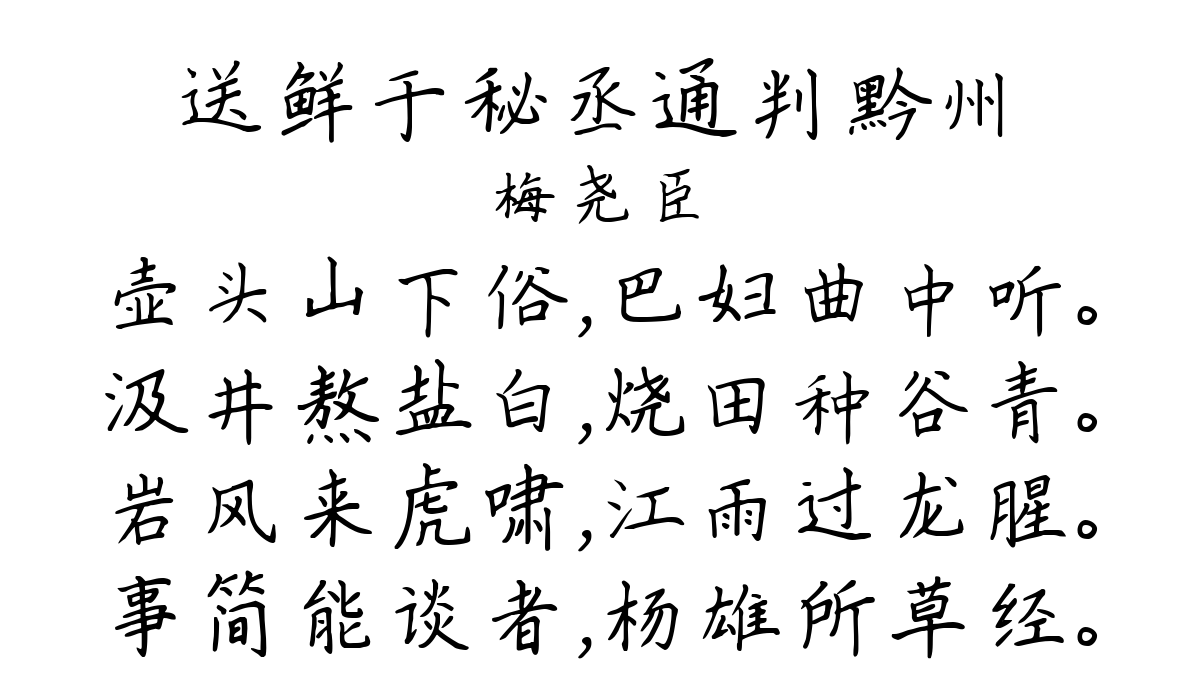 送鲜于秘丞通判黔州
梅尧臣
壶头山下俗,巴妇曲中听。
汲井熬盐白,烧田种谷青。
岩风来虎啸,江雨过龙腥。
事简能谈者,杨雄所草经。